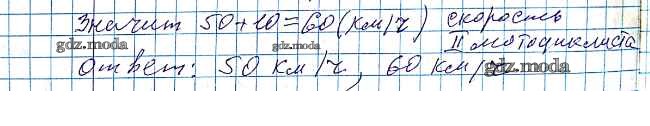 Значит 50+10=60(км/ч) скорость
II мотоциклиста
gdz.moda gdz.moda gdz.moda
Ответ: 50 км/ч, 60 км/ч
gdz.moda